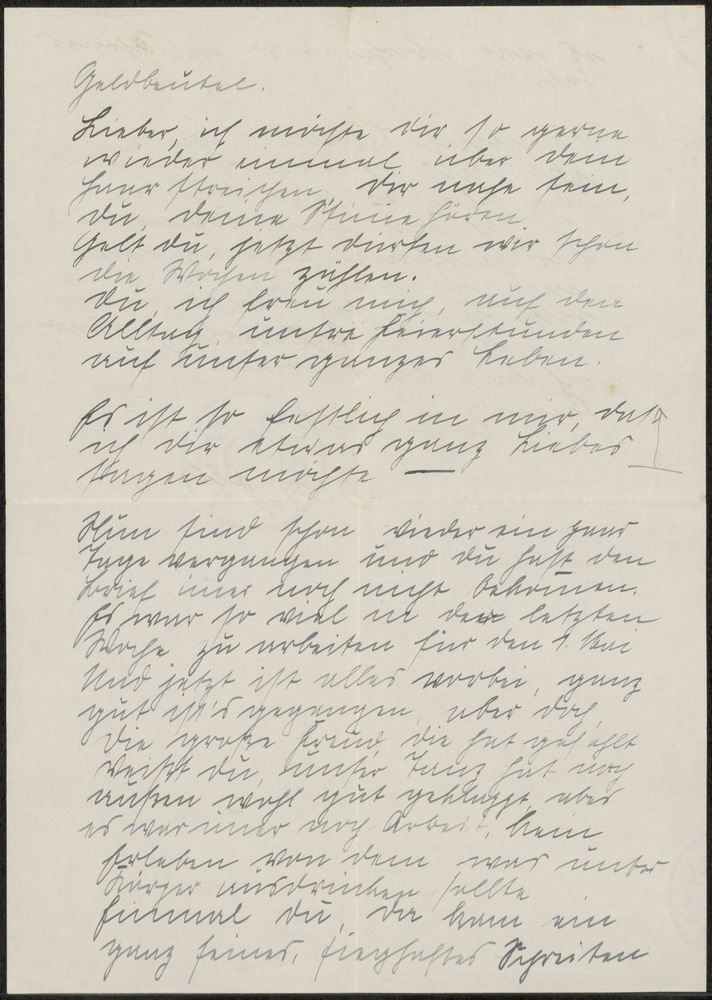 Geldbeutel.
Lieber, ich möchte dir so gerne
wieder einmal über dein
Haar streichen, dir nahe sein,
du, deine Stimme hören.
Gelt du, jetzt dürfen wir schon
die Wochen zählen.
Du, ich freu mich, auf den
Alltag, unsre Feierstunden
auf unser ganzes Leben.
Es ist so festlich in mir, daß
ich dir etwas ganz Liebes
sagen möchte —
Nun sind schon wieder ein paar
Tage vergangen und du hast den
Brief imer noch nicht bekommen.
Es war so viel in der letzten
Woche zu arbeiten für den 1. Mai
Und jetzt ist alles vorbei, ganz
gut ist's gegangen, aber doch,
die große Freud, die hat gefehlt
weißt du, unser Tanz hat nach
außen wohl gut geklappt, aber
es war imer noch Arbeit, kein
Erleben von dem was unser
Körper ausdrücken sollte
Einmal du, da kam ein
ganz feines, sieghaftes Schreiten